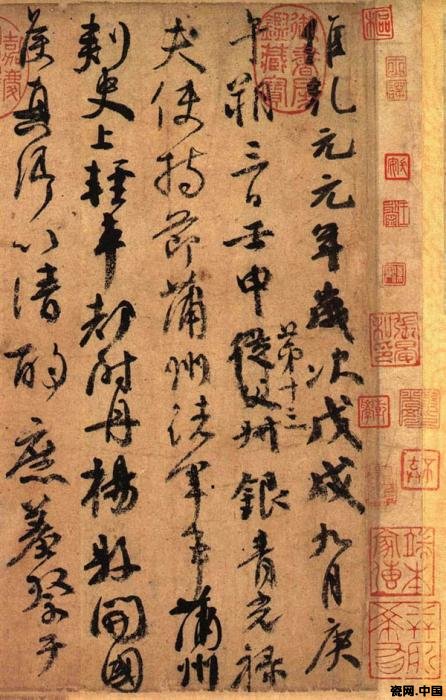 維乾元元年歲次戊戌九月庚
午朔三日壬申從父叔銀青光祿
第十三
夫使持節蒲州諸軍事蒲州
刺史上輕車都尉丹楊縣開國
侯真卿以清酌庶羞祭于
御書房鑑藏寶
嘉慶
瓷网.中国